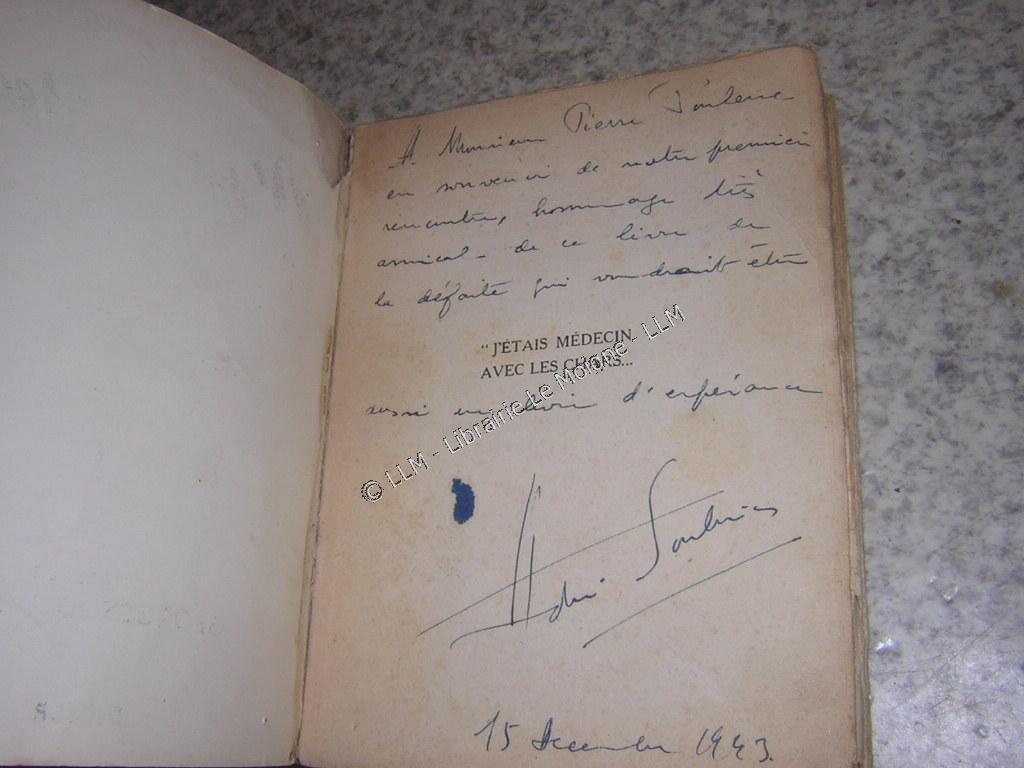 A Monsieur Pierre
en souvenir de notre première
rencontre, hommage très
amical - de ce livre de
la défaite qui voudrait être
"J'ÉTAIS MÉDECIN
AVEC LES CHARS...
aussi un livre d'espérance
© LLM - Librairie Le Moigne - LLM
15 décembre 1943.